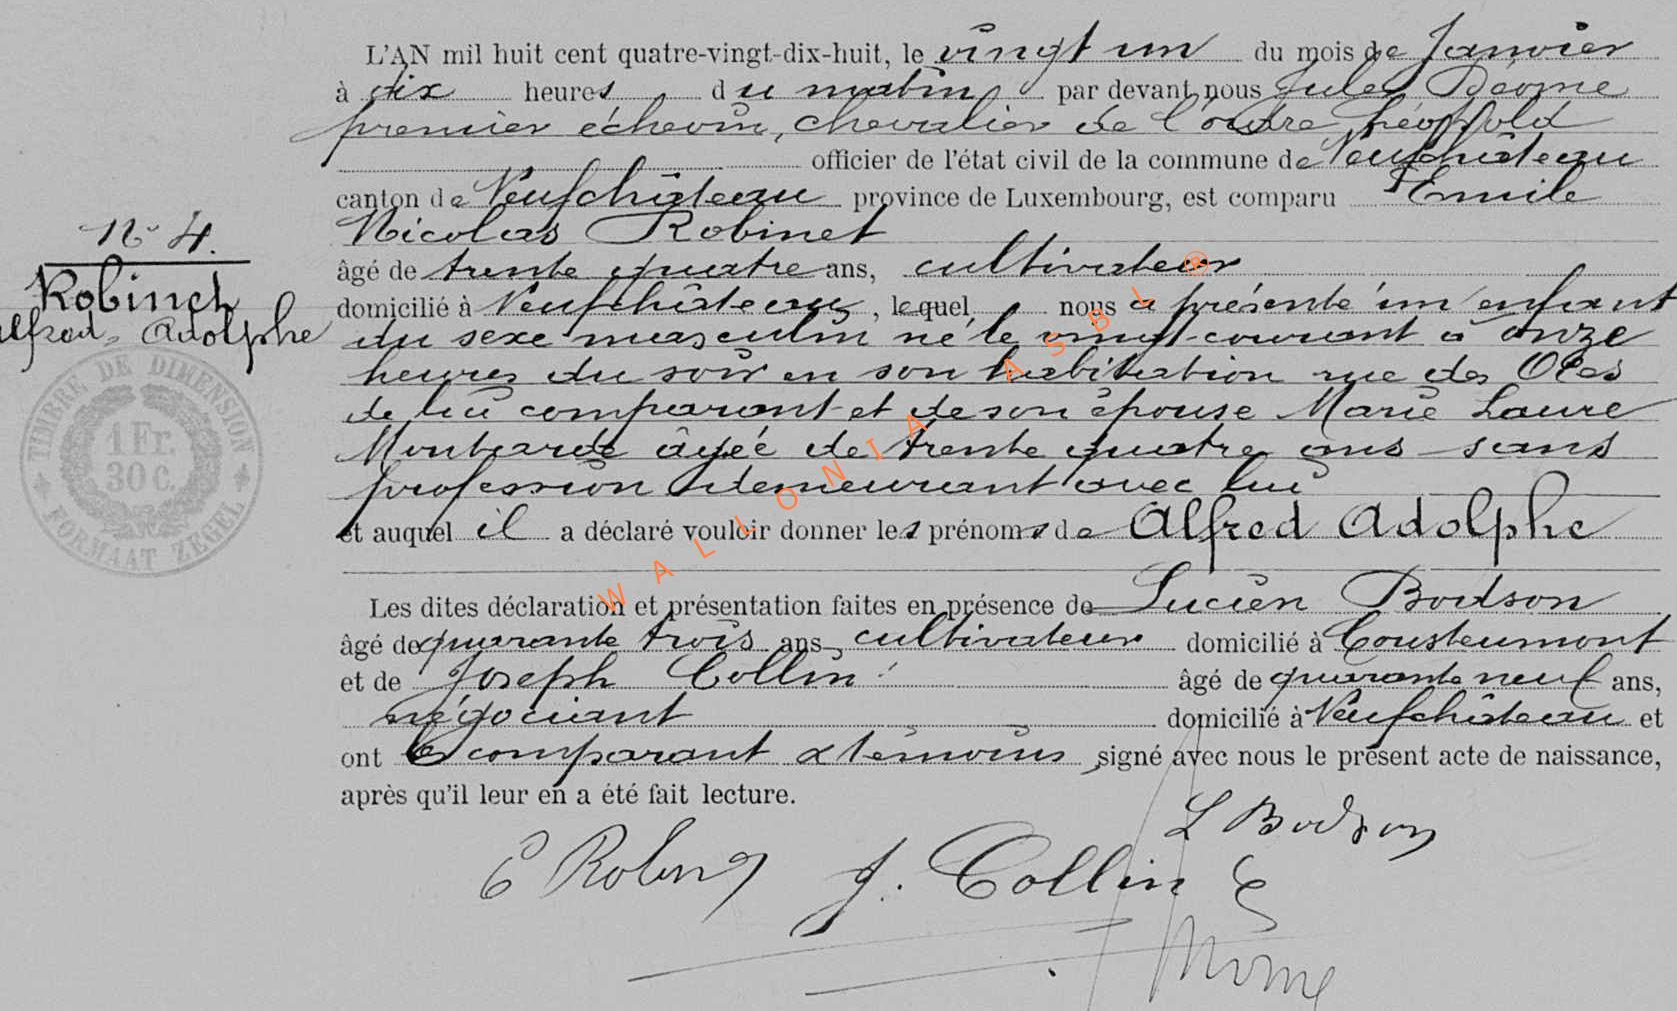 L'AN mil huit cent quatre-vingt-dix-huit, le vingt un du mois de Janvier
à dix heures du matin par devant nous Jules
premier échevin, chevalier de l'ordre Léopold
officier de l'état civil de la commune de Neufchâteau
canton de Neufchâteau province de Luxembourg, est comparu Emile
Nicolas Robinet
âgé de trente quatre ans, cultivateur
domicilié à Neufchâteau, lequel nous a présenté un enfant
du sexe masculin né le vingt courant à onze
heures du soir en son habitation rue des
de lui comparant et de son épouse Marie Laure
âgée de trente quatre ans sans
profession demeurant avec lui
et auquel il a déclaré vouloir donner les prénoms de Alfred Adolphe
Les dites déclaration et présentation faites en présence de Lucien Bodson
âgé de quarante trois ans cultivateur domicilié à Cousteumont
et de Joseph Collin âgé de quarante neuf ans,
négociant domicilié à Neufchâteau et
ont le comparant & témoins signé avec nous le présent acte de naissance,
après qu'il leur en a été fait lecture.
L Bodson
E Robinet J. Collin
No 4.
Robinet
Alfred, Adolphe
TIMBRE DE DIMENSION
1 Fr.
30 C.
FORMAAT ZEGEL
WALLONIA ASBL ®